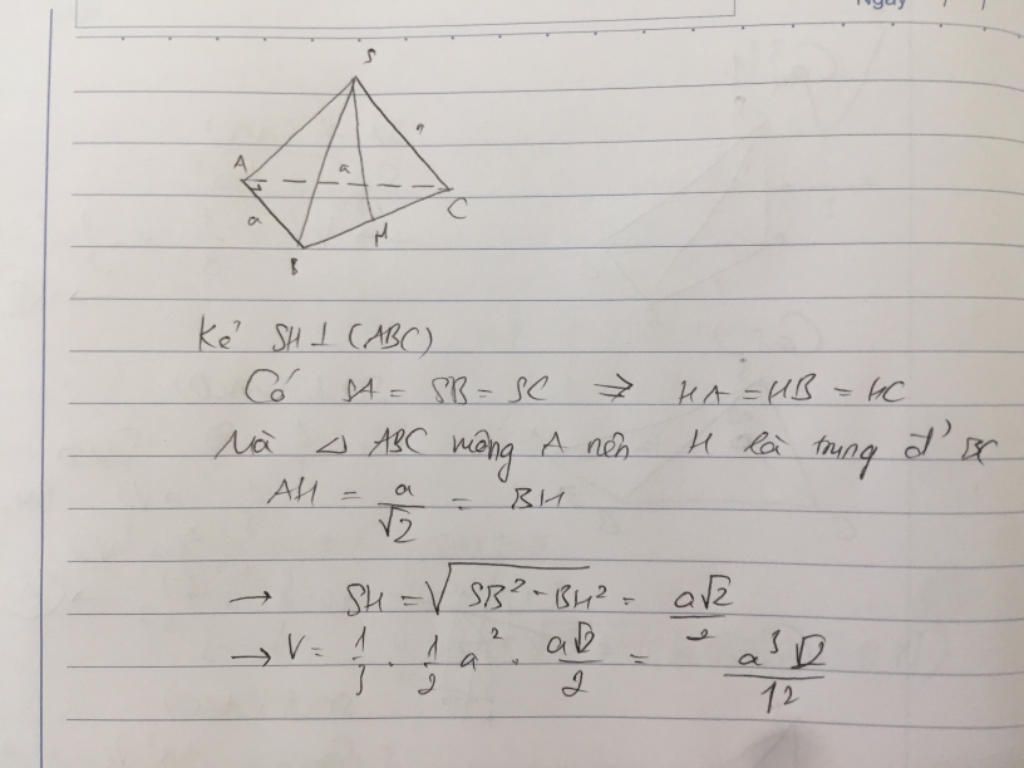 Ngày
S
A
a
a
a
C
H
B
Kẻ SH ⊥ (ABC)
Có SA = SB = SC ⇒ HA = HB = HC
Mà △ ABC vuông A nên H là trung đ' BC
AH = a/√2 = BH
→ SH = √(SB² - BH²) = a√2/2
→ V = 1/3 . 1/2 a² . a√2/2 = a³√2/12